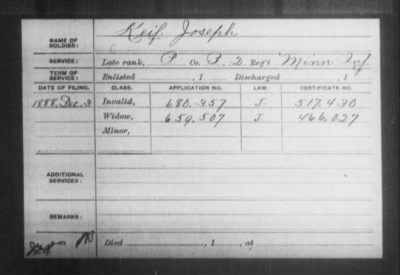 NAME OF SOLDIER: Keif, Joseph
SERVICE: Late rank, P Co. B, 2 Reg't Minn Inf.
TERM OF SERVICE: Enlisted , 1 Discharged , 1
DATE OF FILING. CLASS. APPLICATION NO. LAW. CERTIFICATE NO.
1888, Dec. 3 Invalid, 680.357 J. 517.430
Widow, 659.507 J. 466.027
Minor,
ADDITIONAL SERVICES:
REMARKS:
Died , 1 , at